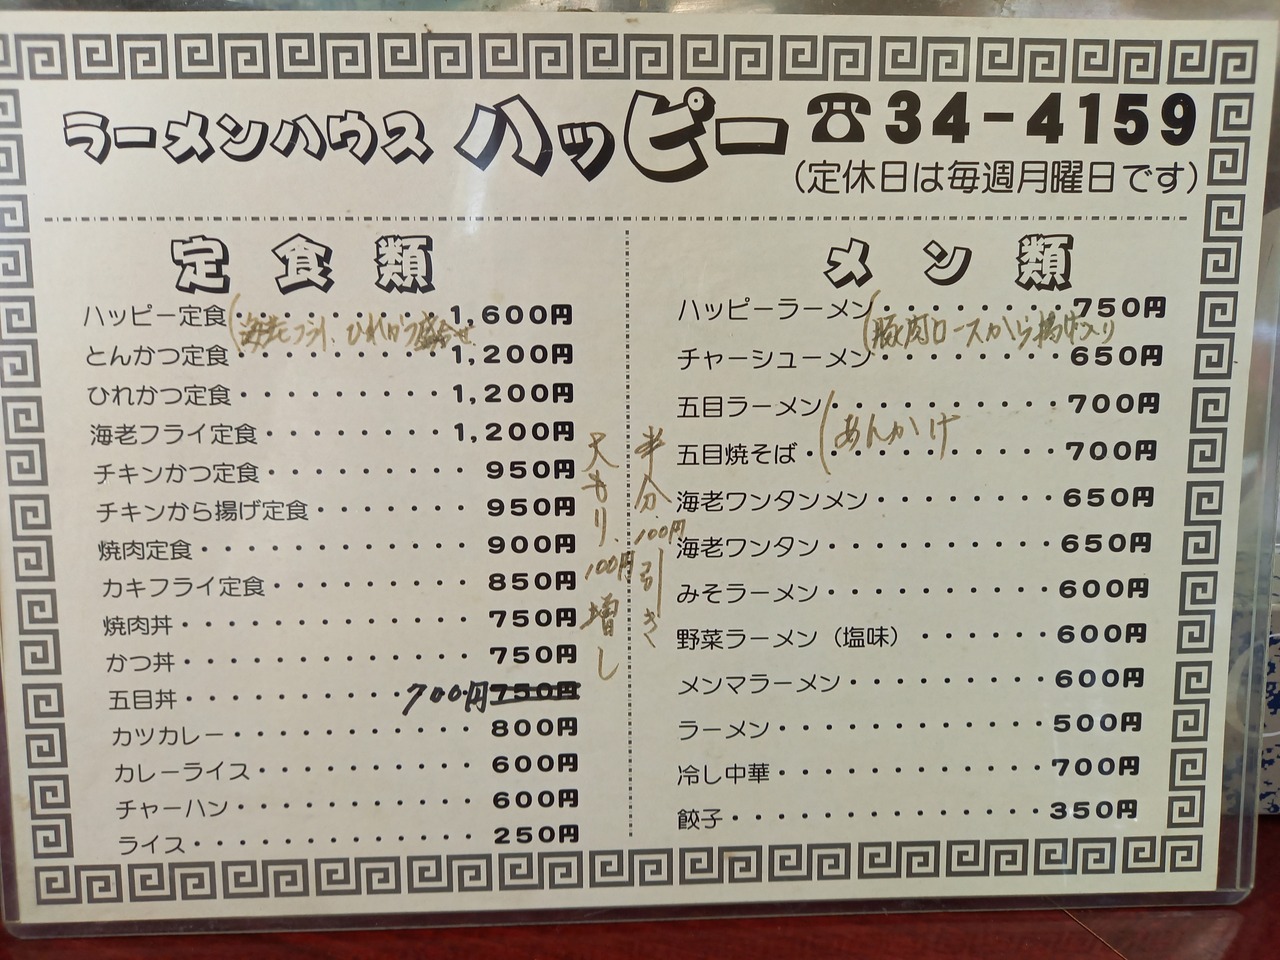 ラーメンハウス ハッピー ☎34-4159
(定休日は毎週月曜日です)
定食類
ハッピー定食・・・・・・・・・1,600円
(海老フライ、ひれかつ盛合せ
とんかつ定食・・・・・・・・・1,200円
ひれかつ定食・・・・・・・・・1,200円
海老フライ定食・・・・・・・・1,200円
チキンかつ定食・・・・・・・・・950円
チキンから揚げ定食・・・・・・・950円
焼肉定食・・・・・・・・・・・・900円
カキフライ定食・・・・・・・・・850円
焼肉丼・・・・・・・・・・・・・750円
かつ丼・・・・・・・・・・・・・750円
五目丼・・・・・・・・・・700円 750円
カツカレー・・・・・・・・・・・800円
カレーライス・・・・・・・・・・600円
チャーハン・・・・・・・・・・・600円
ライス・・・・・・・・・・・・・250円
大もり、100円増し
半分、100円引き
メン類
ハッピーラーメン・・・・・・・・750円
(豚肉ロースから揚げ入り
チャーシューメン・・・・・・・・650円
五目ラーメン・・・・・・・・・・700円
(あんかけ
五目焼そば・・・・・・・・・・・700円
海老ワンタンメン・・・・・・・・650円
海老ワンタン・・・・・・・・・・650円
みそラーメン・・・・・・・・・・600円
野菜ラーメン(塩味)・・・・・・600円
メンマラーメン・・・・・・・・・600円
ラーメン・・・・・・・・・・・・500円
冷し中華・・・・・・・・・・・・700円
餃子・・・・・・・・・・・・・・350円